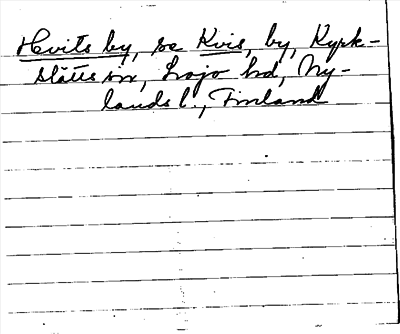 Hvits by, se Kvis, by, Kyrk-
slätts sn, Lojo hd, Ny-
lands l., Finland